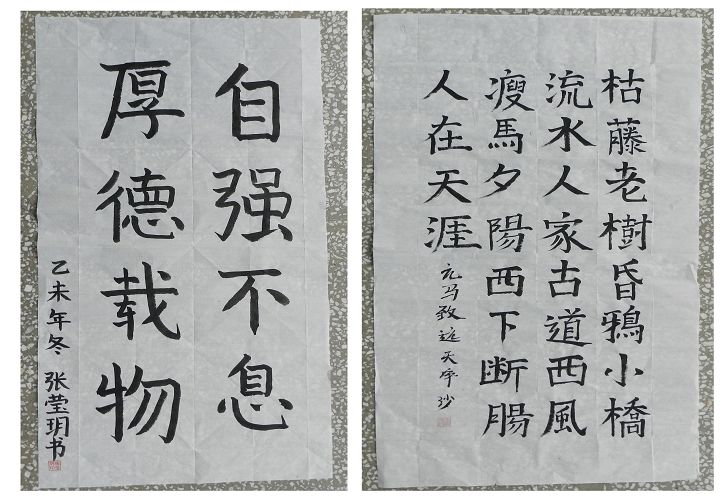 自强不息
厚德载物
乙未年冬 张莹玥书
枯藤老樹昏鴉小橋
流水人家古道西風
瘦馬夕陽西下断腸
人在天涯
元马致远天净沙